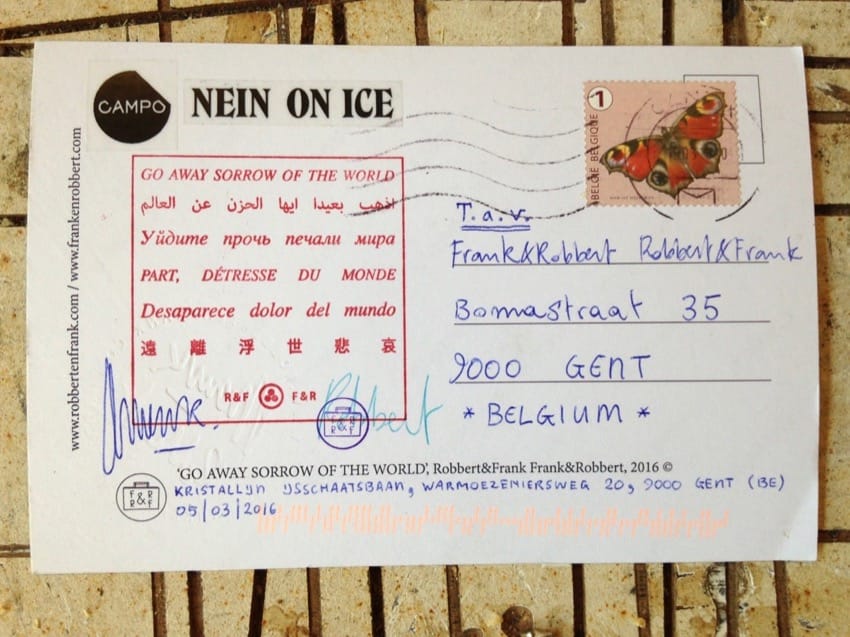 CAMPO
NEIN ON ICE
1
BELGIE BELGIQUE
www.robbertenfrank.com / www.frankenrobbert.com
GO AWAY SORROW OF THE WORLD
اذهب بعيدا ايها الحزن عن العالم
Уйдите прочь печали мира
PART, DÉTRESSE DU MONDE
Desaparece dolor del mundo
遠離浮世悲哀
R&F F&R
T.a.v.
Frank&Robbert Robbert&Frank
Bomastraat 35
9000 GENT
* BELGIUM *
Robbert
F&R
R&F
'GO AWAY SORROW OF THE WORLD', Robbert&Frank Frank&Robbert, 2016 ©
F&R
R&F
KRISTALLIJN IJSSCHAATSBAAN, WARMOEZENIERSWEG 20, 9000 GENT (BE)
05/03/2016